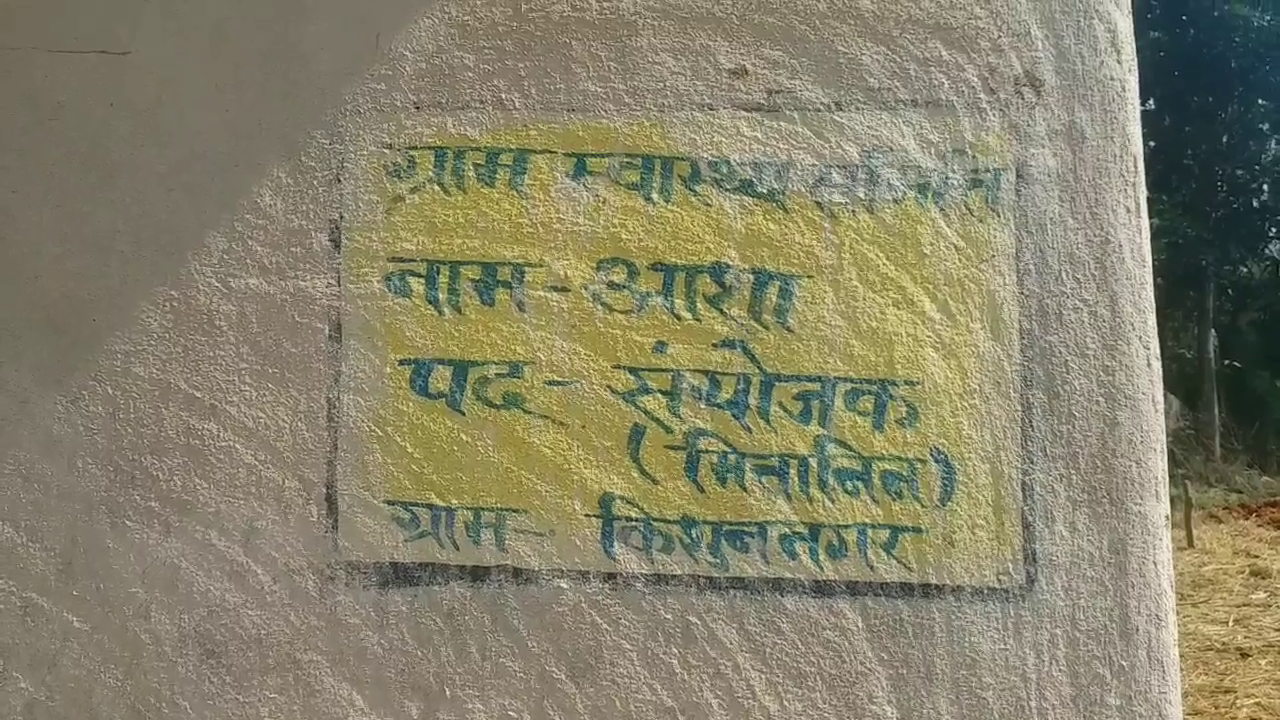 ग्राम स्वास्थ्य समिति
नाम - आशा
पद - संयोजक
( मितानिन)
ग्राम - किशुननगर